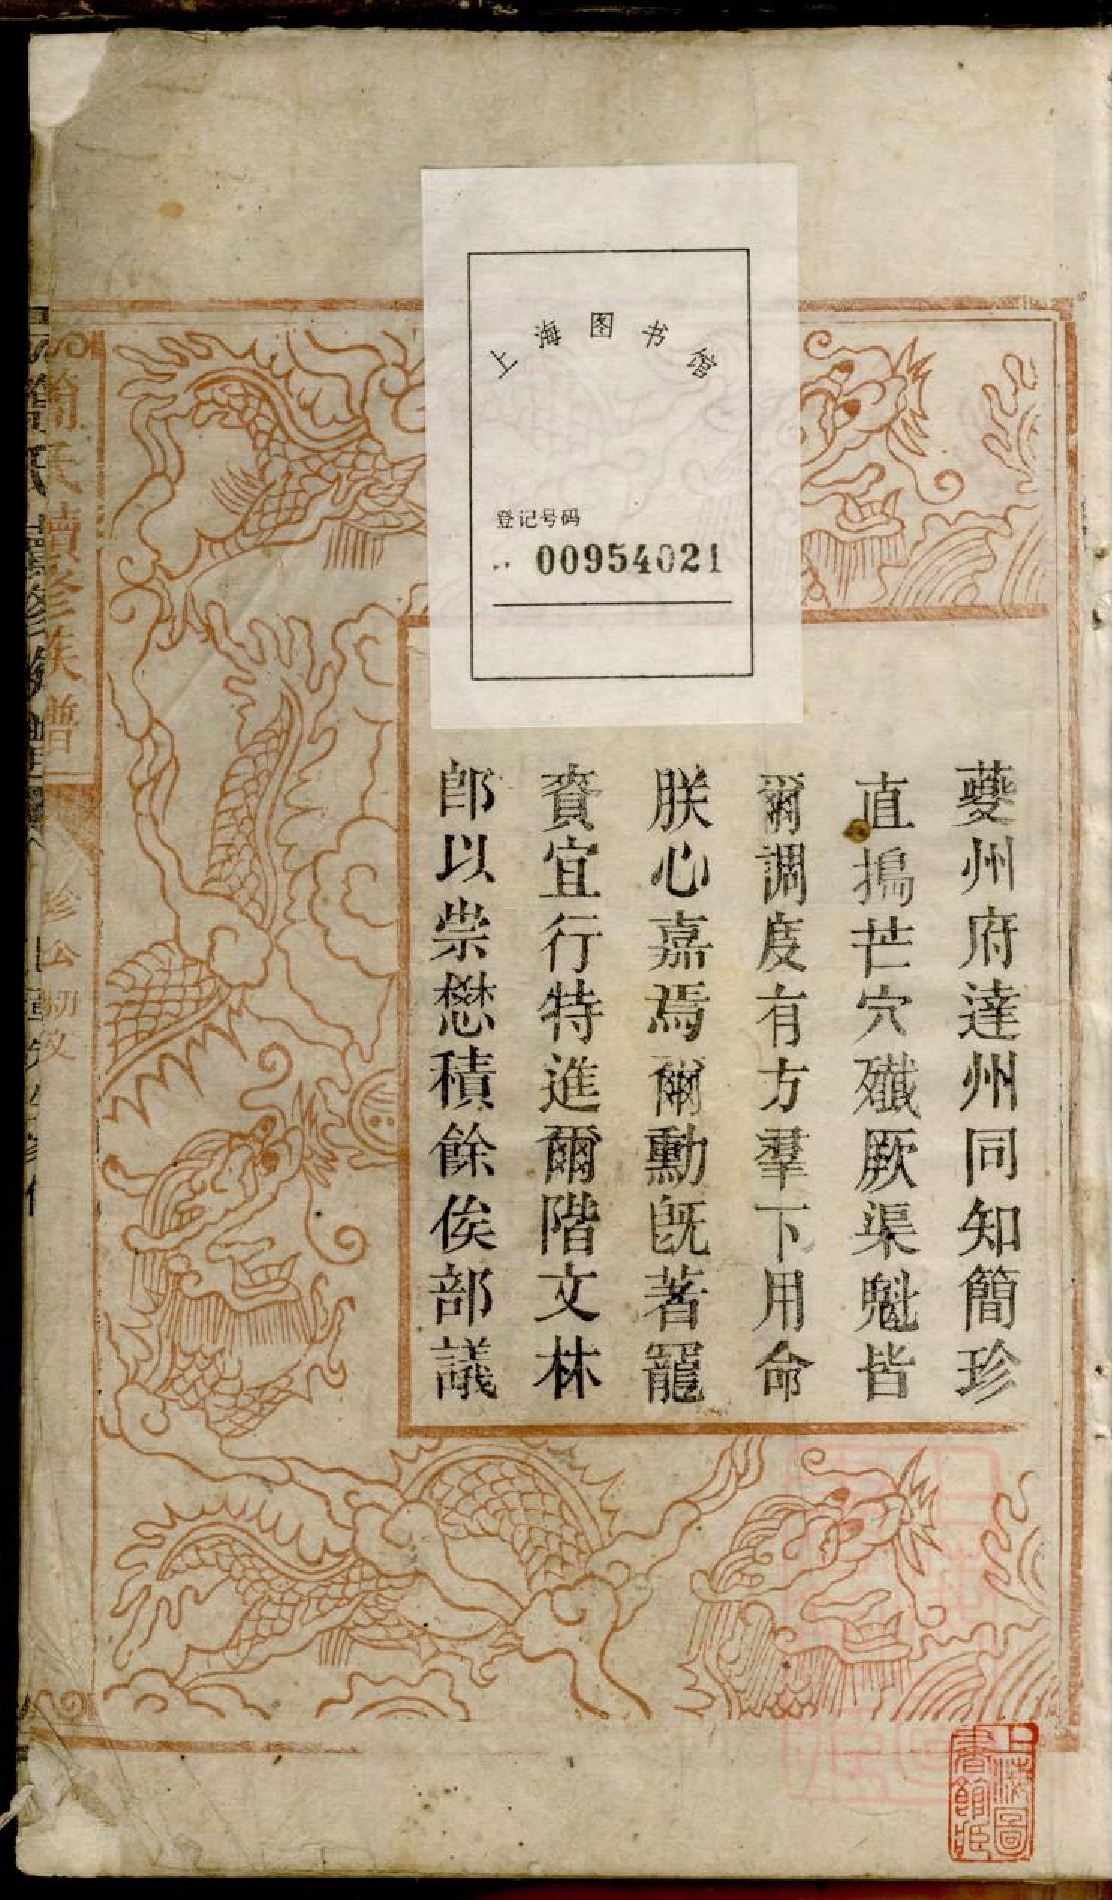 上海图书馆
登记号码
00954021
夔州府達州同知簡珍
直搗芒穴殲厥渠魁皆
爾調度有方羣下用命
朕心嘉焉爾勳既著寵
賚宜行特進爾階文林
郎以崇懋積餘俟部議
續修族譜
珍公勅文
上海圖書館藏